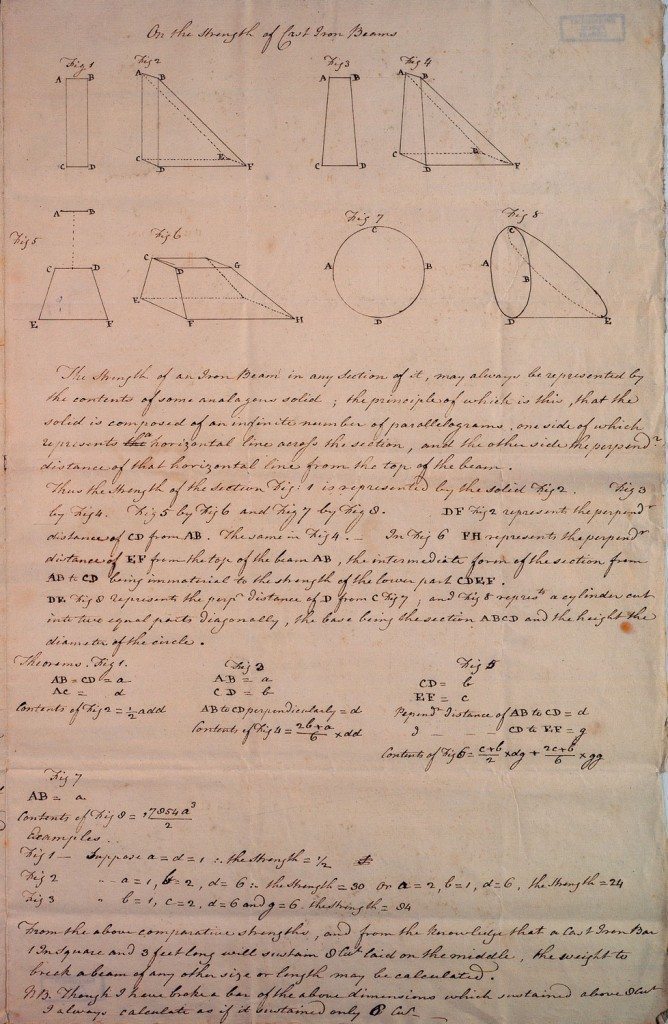 On the Strength of Cast Iron Beams
Fig 1 Fig 2 Fig 3 Fig 4
A B A B A B A B
C D C D E F C D C D E F
A B
Fig 5 Fig 6 Fig 7 Fig 8
C D C D G C A B D C A B
E F E F H D E
The Strength of an Iron Beam in any Section of it, may always be represented by
the contents of some analagous solid; the principle of which is this, that the
solid is composed of an infinite number of parallelograms, one side of which
represents a horizontal line across the section, and the other side the perpendr
distance of that horizontal line from the top of the beam.
Thus the strength of the section Fig: 1 is represented by the solid Fig 2. Fig 3
by Fig 4. Fig 5 by Fig 6 and Fig 7 by Fig 8. DF Fig 2 represents the perpendr
distance of CD from AB. The same in Fig 4. — In Fig 6 FH represents the perpendr
distance of EF from the top of the beam AB, the intermediate form of the section from
AB to CD being immaterial to the strength of the lower part CDEF.
DE Fig 8 represents the perpr distance of D from C Fig 7, and Fig 8 represts a cylinder cut
into two equal parts diagonally, the base being the section ABCD and the height the
diameter of the circle.
Theorems. Fig 1. Fig 3 Fig 5
AB = CD = a AB = a CD = b
AC = d CD = b EF = c
Contents of Fig 2 = ½ add AB to CD perpendicularly = d Perpendr Distance of AB to CD = d
Contents of Fig 4 = 2b+a/6 × dd CD to EF = g
Contents of Fig 6 = c+b/2 × dg + 2c+b/6 × gg
Fig 7
AB = a
Contents of Fig 8 = ,7854a³/2
Examples..
Fig 1 — Suppose a = d = 1 ∴ the strength = ½
Fig 2 " a = 1, b = 2, d = 6 ∴ the strength = 30 or a = 2, b = 1, d = 6, the strength = 24
Fig 3 " b = 1, c = 2, d = 6 and g = 6. the strength = 84
From the above comparative strengths, and from the knowledge that a Cast Iron Bar
1 In Square and 3 feet long will sustain 8 Cwt laid on the middle, the weight to
break a beam of any other size or length may be calculated.
NB. Though I have broke a bar of the above dimensions which sustained above 8 Cwt
I always calculate as if it sustained only 6 Cwt —